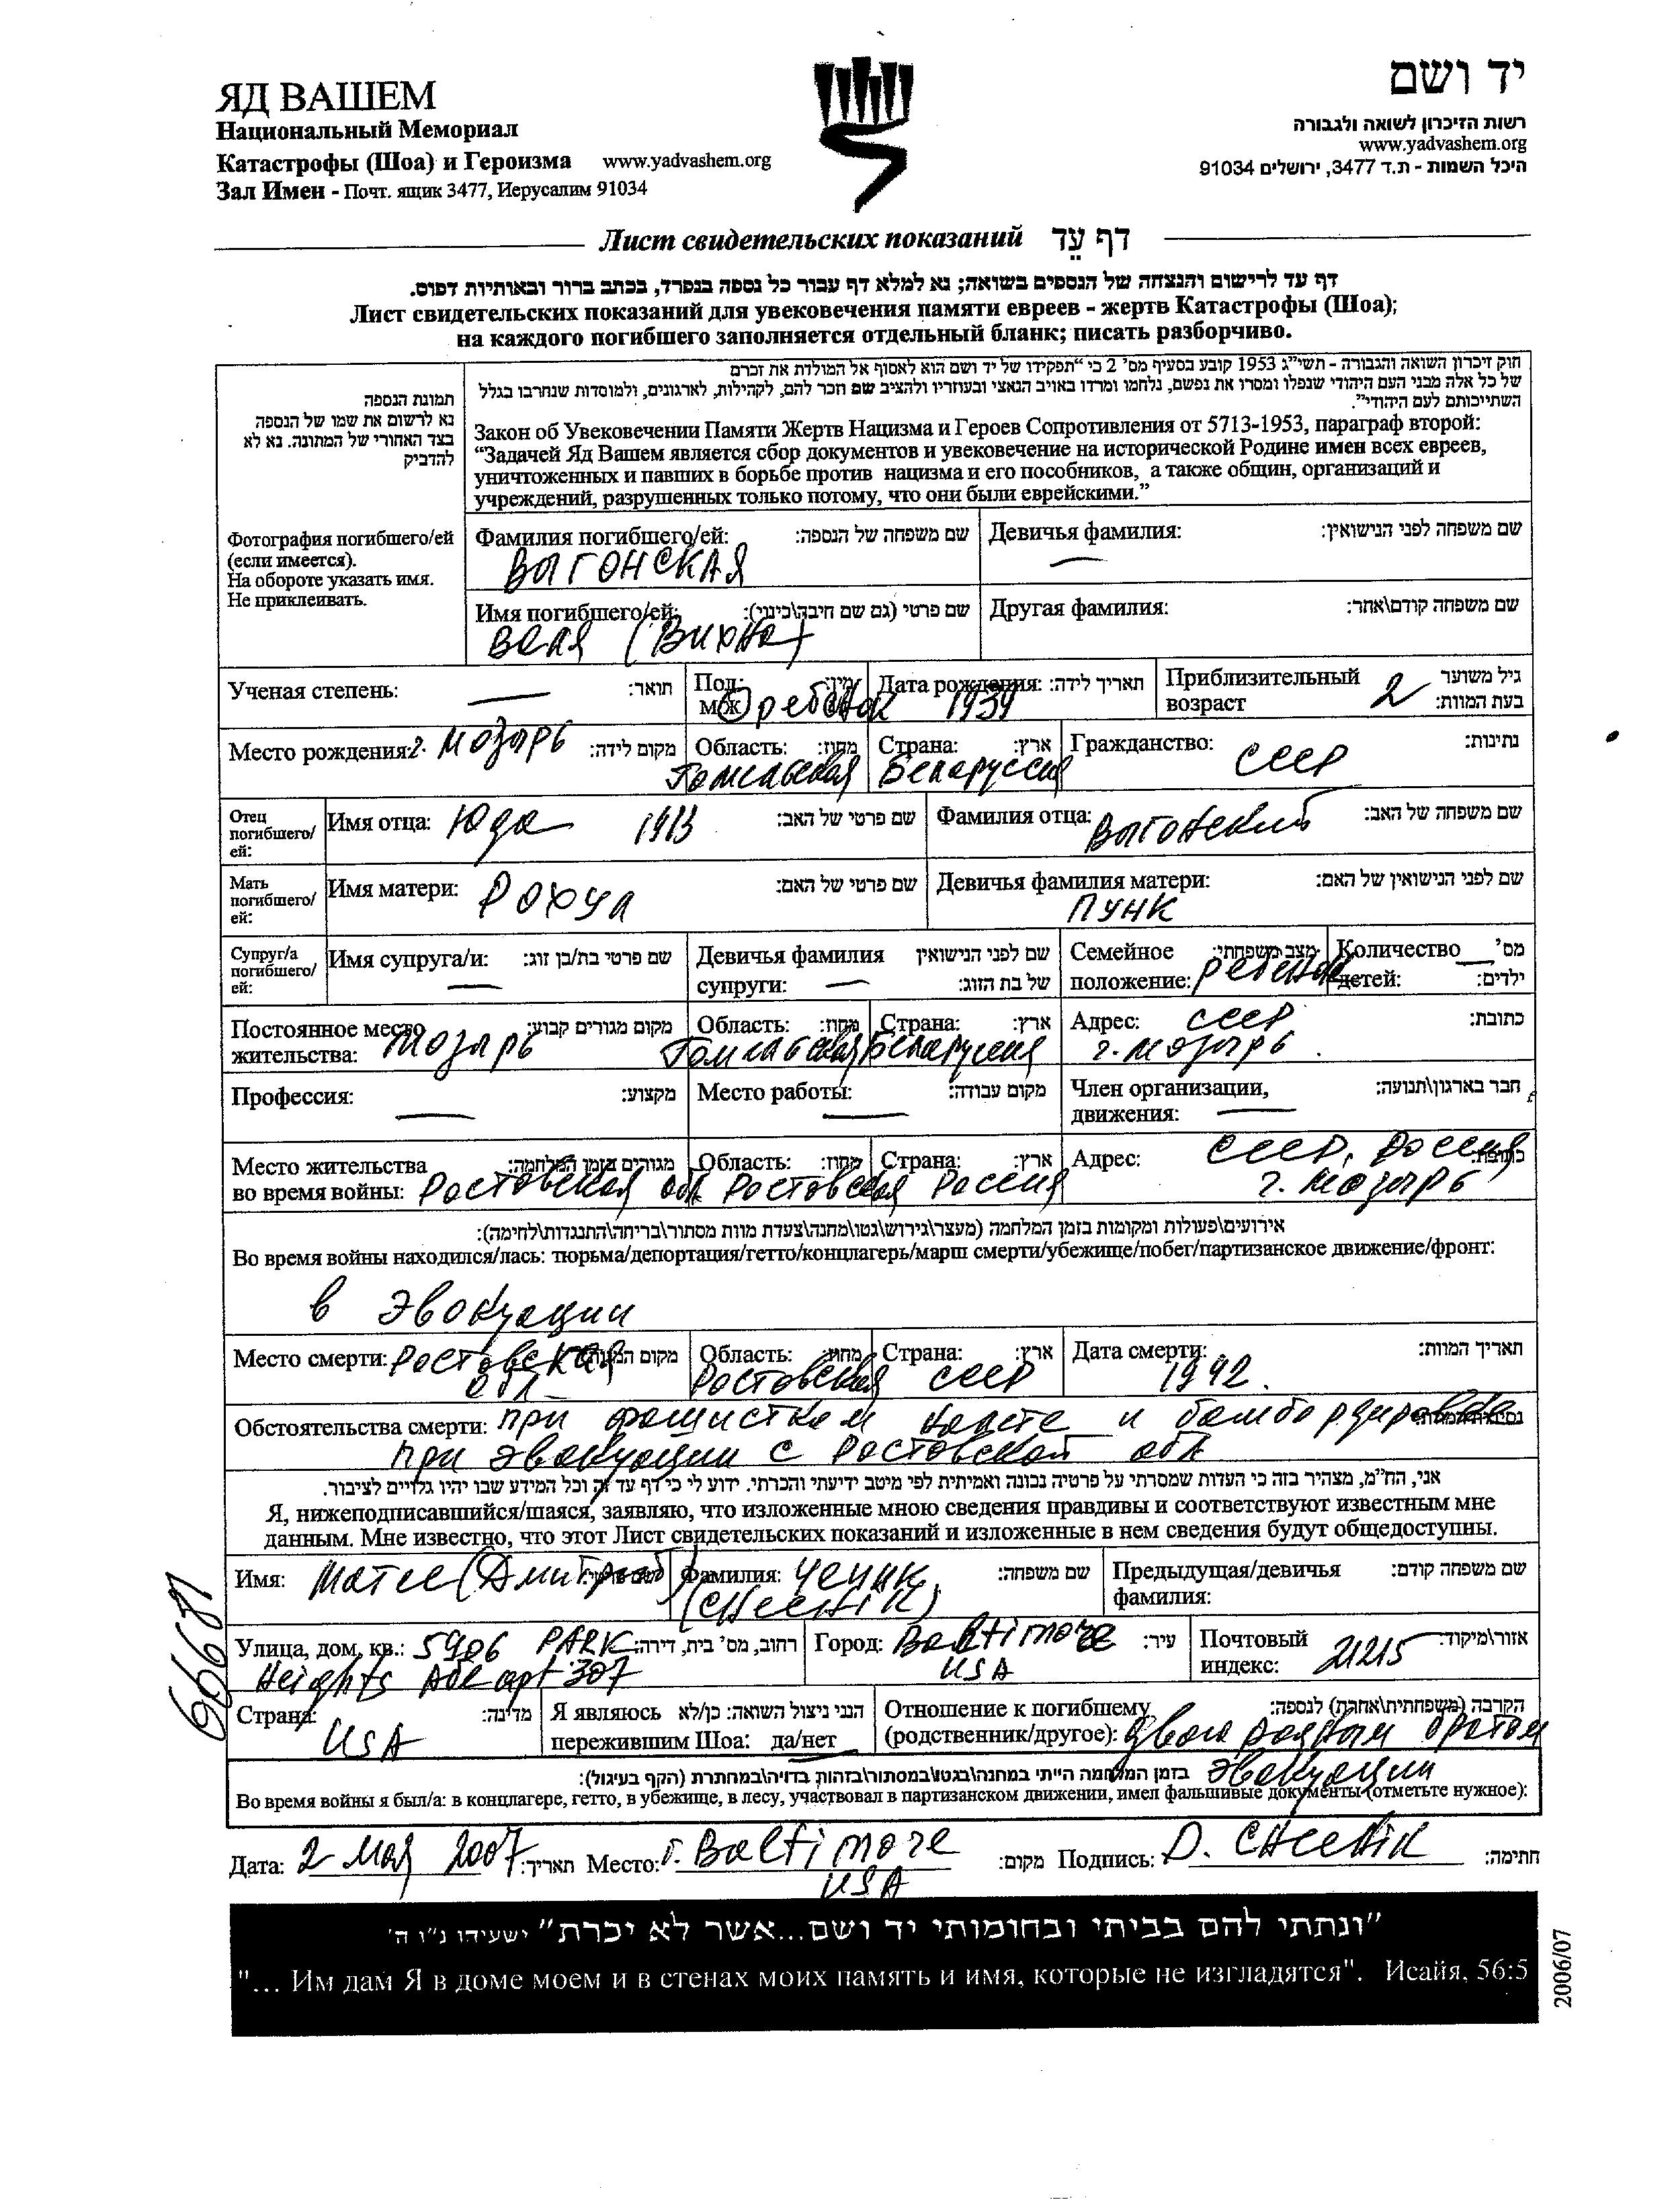 ЯД ВАШЕМ
Национальный Мемориал
Катастрофы (Шоа) и Героизма www.yadvashem.org
Зал Имен - Почт. ящик 3477, Иерусалим 91034
יד ושם
רשות הזיכרון לשואה ולגבורה
www.yadvashem.org
היכל השמות - ת.ד 3477, ירושלים 91034
Лист свидетельских показаний דף עֵד
דף עד לרישום והנצחה של הנספים בשואה; נא למלא דף עבור כל נספה בנפרד, בכתב ברור ובאותיות דפוס.
Лист свидетельских показаний для увековечения памяти евреев - жертв Катастрофы (Шоа);
на каждого погибшего заполняется отдельный бланк; писать разборчиво.
תמונת הנספה
נא לרשום את שמו של הנספה
בצד האחורי של התמונה. נא לא
להדביק
Фотография погибшего/ей
(если имеется).
На обороте указать имя.
Не приклеивать.
חוק זיכרון השואה והגבורה - תשי"ג 1953 קובע בסעיף מס' 2 כי "תפקידו של יד ושם הוא לאסוף אל המולדת את זכרם
של כל אלה מבני העם היהודי שנפלו ומסרו את נפשם, נלחמו ומרדו באויב הנאצי ובעוזריו ולהציב שם וזכר להם, לקהילות, לארגונים, ולמוסדות שנחרבו בגלל
השתייכותם לעם היהודי".
Закон об Увековечении Памяти Жертв Нацизма и Героев Сопротивления от 5713-1953, параграф второй:
“Задачей Яд Вашем является сбор документов и увековечение на исторической Родине имен всех евреев,
уничтоженных и павших в борьбе против нацизма и его пособников, а также общин, организаций и
учреждений, разрушенных только потому, что они были еврейскими.”
Фамилия погибшего/ей: שם משפחה של הנספה: Девичья фамилия: שם משפחה לפני הנישואין:
ВЫГОНСКАЯ —
Имя погибшего/ей: שם פרטי (גם שם חיבה\כינוי): Другая фамилия: שם משפחה קודם\אחר:
Валя (Вихна)
Ученая степень: — תואר: Пол: м/ж מין: ребенок Дата рождения: תאריך לידה: 1939 Приблизительный возраст 2 גיל משוער בעת המוות:
Место рождения: г. Мозырь מקום לידה: Область: מחוז: Гомельская Страна: ארץ: Беларуссия Гражданство: СССР נתינות:
Отец погибшего/ей: Имя отца: Юда 1913 שם פרטי של האב: Фамилия отца: Выгонский שם משפחה של האב:
Мать погибшего/ей: Имя матери: Рохул שם פרטי של האם: Девичья фамилия матери: ПУНК שם לפני הנישואין של האם:
Супруг/а погибшего/ей: Имя супруга/и: — שם פרטי בת/בן זוג: Девичья фамилия супруги: — שם לפני הנישואין של בת הזוג: Семейное положение: ребенок מצב משפחתי: Количество детей: — מס' ילדים:
Постоянное место жительства: Мозырь מקום מגורים קבוע: Область: מחוז: Гомельская Страна: ארץ: Беларуссия Адрес: СССР г. Мозырь כתובת:
Профессия: — מקצוע: Место работы: — מקום עבודה: Член организации, движения: — חבר בארגון\תנועה:
Место жительства во время войны: Ростовская обл מגורים בזמן המלחמה: Область: מחוז: Ростовская Страна: ארץ: Россия Адрес: СССР, Россия г. Мозырь כתובת:
אירועים\פעולות ומקומות בזמן המלחמה (מעצר\גירוש\גטו\מחנה\צעדת מוות מסתור\בריחה\התנגדות\לחימה):
Во время войны находился/лась: тюрьма/депортация/гетто/концлагерь/марш смерти/убежище/побег/партизанское движение/фронт:
в эвокуации
Место смерти: Ростовская обл מקום המוות: Область: מחוז: Ростовская Страна: ארץ: СССР Дата смерти: 1942. תאריך המוות:
Обстоятельства смерти: при фошистком налете и бомбордировке
при эвокуации с Ростовской обл
אני, הח"מ, מצהיר בזה כי העדות שמסרתי על פרטיה נכונה ואמיתית לפי מיטב ידיעתי והכרתי. ידוע לי כי דף עד זה וכל המידע שבו יהיו גלויים לציבור.
Я, нижеподписавшийся/шаяся, заявляю, что изложенные мною сведения правдивы и соответствуют известным мне
данным. Мне известно, что этот Лист свидетельских показаний и изложенные в нем сведения будут общедоступны.
Имя: Мотел (Дмитрий) שם פרטי: Фамилия: Чечик (CHECHIK) שם משפחה: Предыдущая/девичья фамилия: שם משפחה קודם:
Улица, дом, кв.: 5906 PARK Heights Ave apt 307 רחוב, מס' בית, דירה: Город: Baltimore USA עיר: Почтовый индекс: 21215 אזור\מיקוד:
Страна: USA מדינה: Я являюсь пережившим Шоа: да/нет הנני ניצול השואה: כן/לא Отношение к погибшему (родственник/другое): двоюродным братом הקרבה (משפחתית\אחרת) לנספה:
בזמן המלחמה הייתי במחנה\בגטו\במסתור\בזהות בדויה\במחתרת (הקף בעיגול): эвокуации
Во время войны я был/а: в концлагере, гетто, в убежище, в лесу, участвовал в партизанском движении, имел фальшивые документы (отметьте нужное):
Дата: 2 Мая 2007 תאריך: Место: г. Baltimore USA מקום: Подпись: D. CHECHIK חתימה:
"ונתתי להם בביתי ובחומותי יד ושם...אשר לא יכרת" ישעיהו נ"ו ה'
"... Им дам Я в доме моем и в стенах моих память и имя, которые не изгладятся". Исайя, 56:5
2006/07